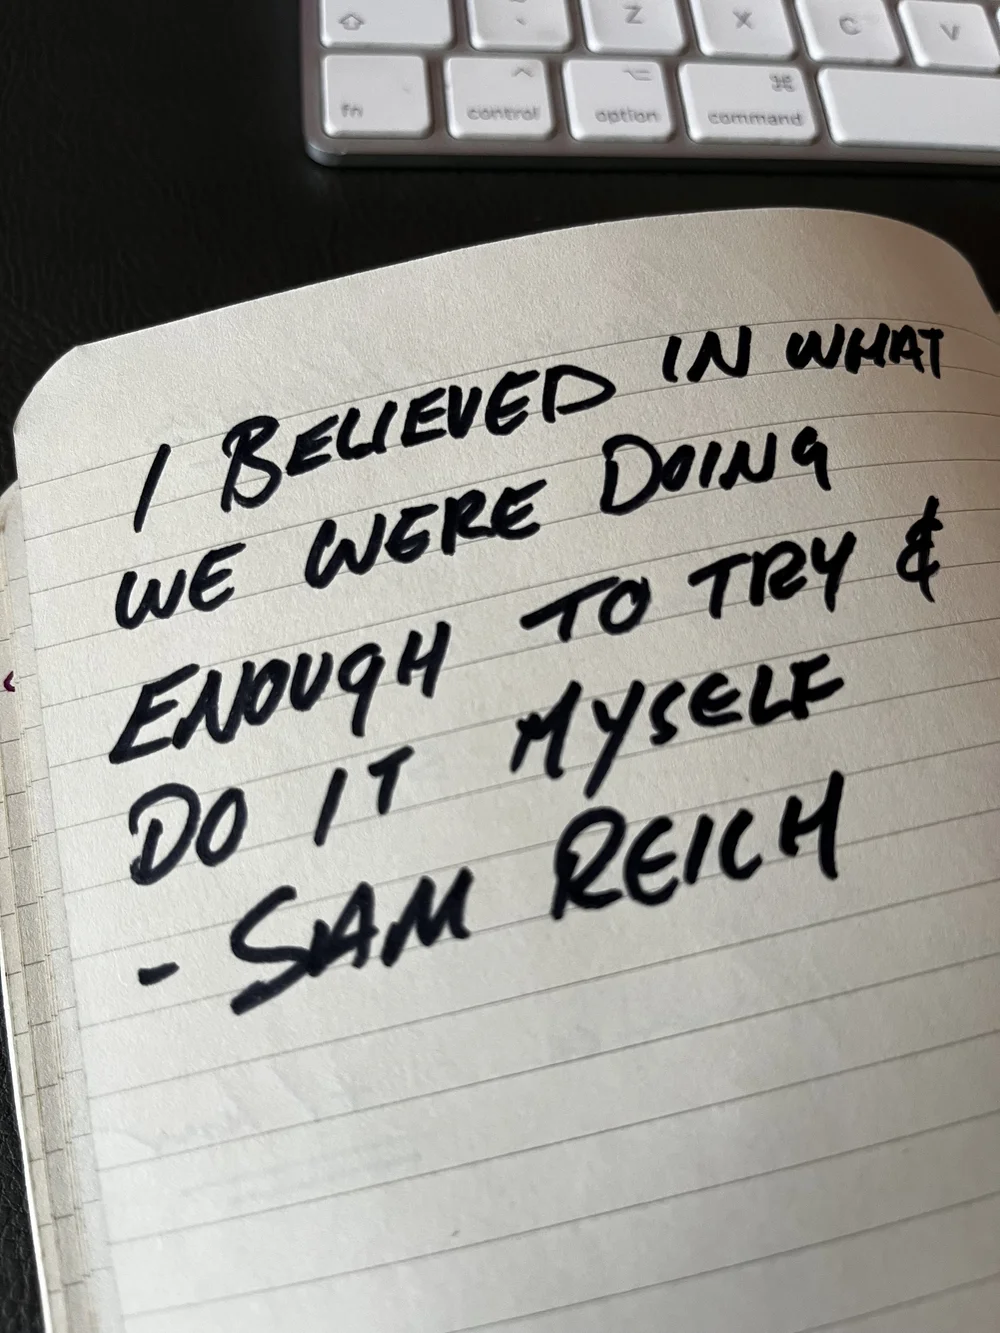 Z X C V
fn control option command
I BELIEVED IN WHAT
WE WERE DOING
ENOUGH TO TRY &
DO IT MYSELF
- SAM REICH